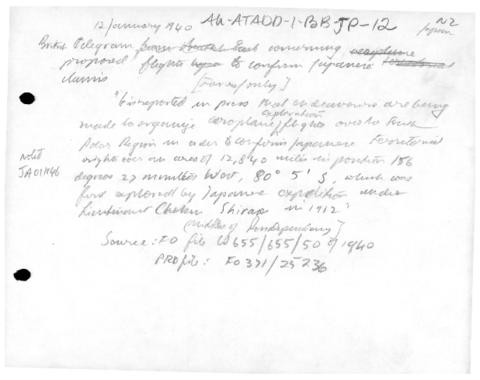 12/January 1940 AU-ATADD-1-BB-JP-12 N2
Japan
British Telegram, concerning
proposed flights to confirm Japanese
claims
[Format only]
"It is reported in press that endeavours are being
exploration
made to organise aeroplane flights over to South
Polar Region in order to confirm Japanese Territorial
rights over an area of 12,840 miles in position 156
noted
JA011946
degrees 27 minutes West, 80° 5' S, which was
first explored by Japanese expedition under
Lieutenant Shirap in 1912"
Source: FO file W655/655/50 of 1940
PRO file: FO371/25236